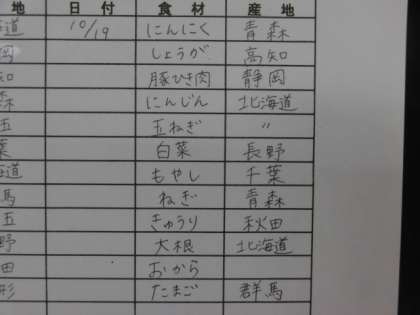 地 日付 食材 産地
道 10/19 にんにく 青森
岡 しょうが 高知
知 豚ひき肉 静岡
森 にんじん 北海道
玉 玉ねぎ 〃
葉 白菜 長野
海道 もやし 千葉
馬 ねぎ 青森
玉 きゅうり 秋田
野 大根 北海道
田 おから
形 たまご 群馬